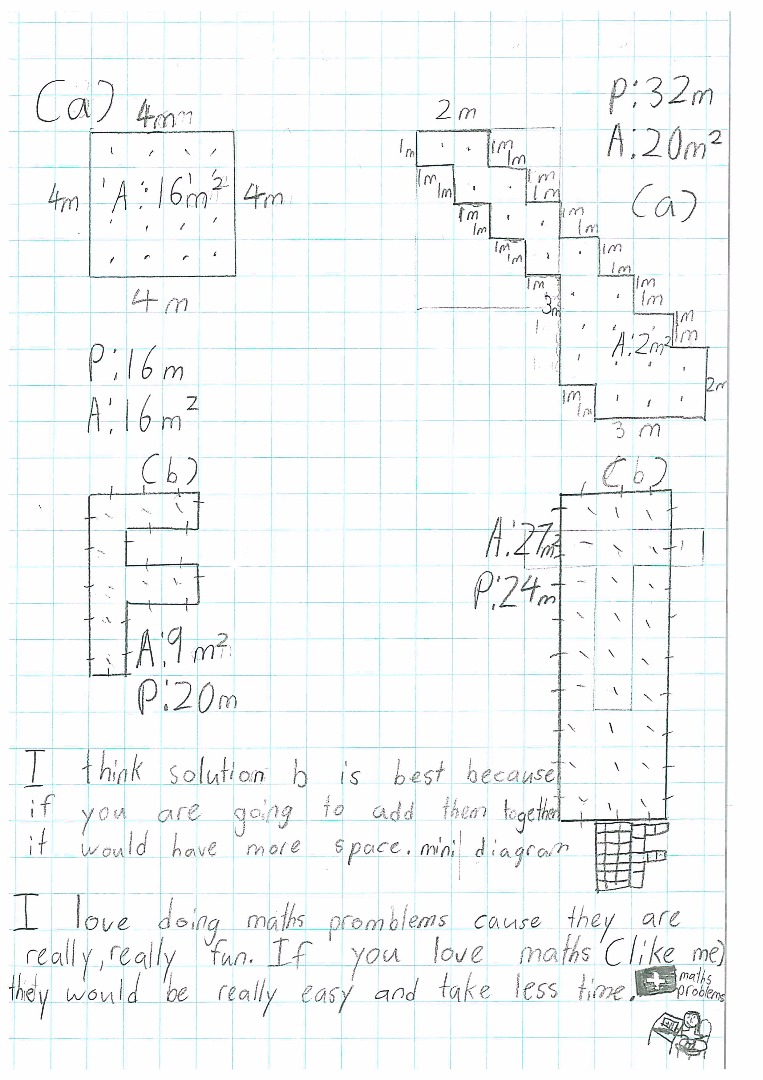 (a) 4m
4m A: 16m² 4m
4 m
P: 16 m
A: 16 m²
2 m
1m 1m
1m
1m 1m
1m 1m
1m 1m
1m 1m
1m 1m
1m 1m
1m 1m
3m 1m
1m
1m
A: 2m²
2m
1m
1m
3 m
P: 32m
A: 20m²
(a)
(b)
A: 9 m²
P: 20m
(b)
A: 27m²
P: 24m
I think solution b is best because
if you are going to add them together
it would have more space. mini diagram
I love doing maths promblems cause they are
really, really fun. If you love maths (like me)
they would be really easy and take less time.
+ maths
problems